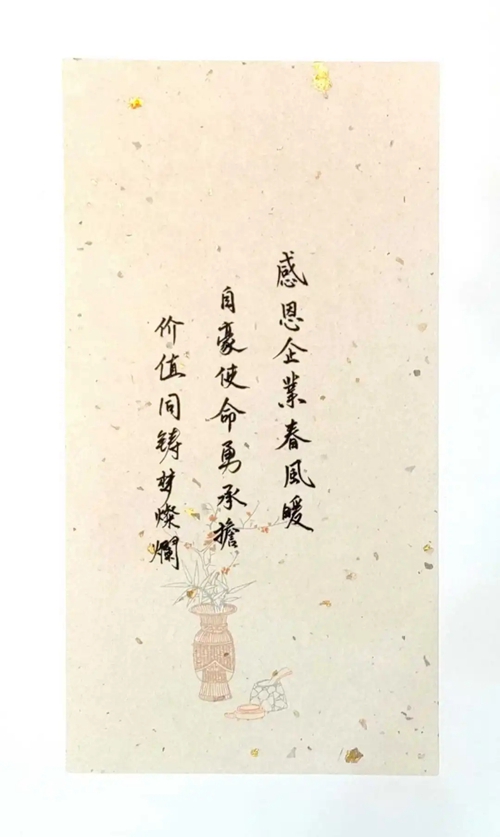 感恩企業春風暖
自豪使命勇承擔
价值同铸梦燦爛